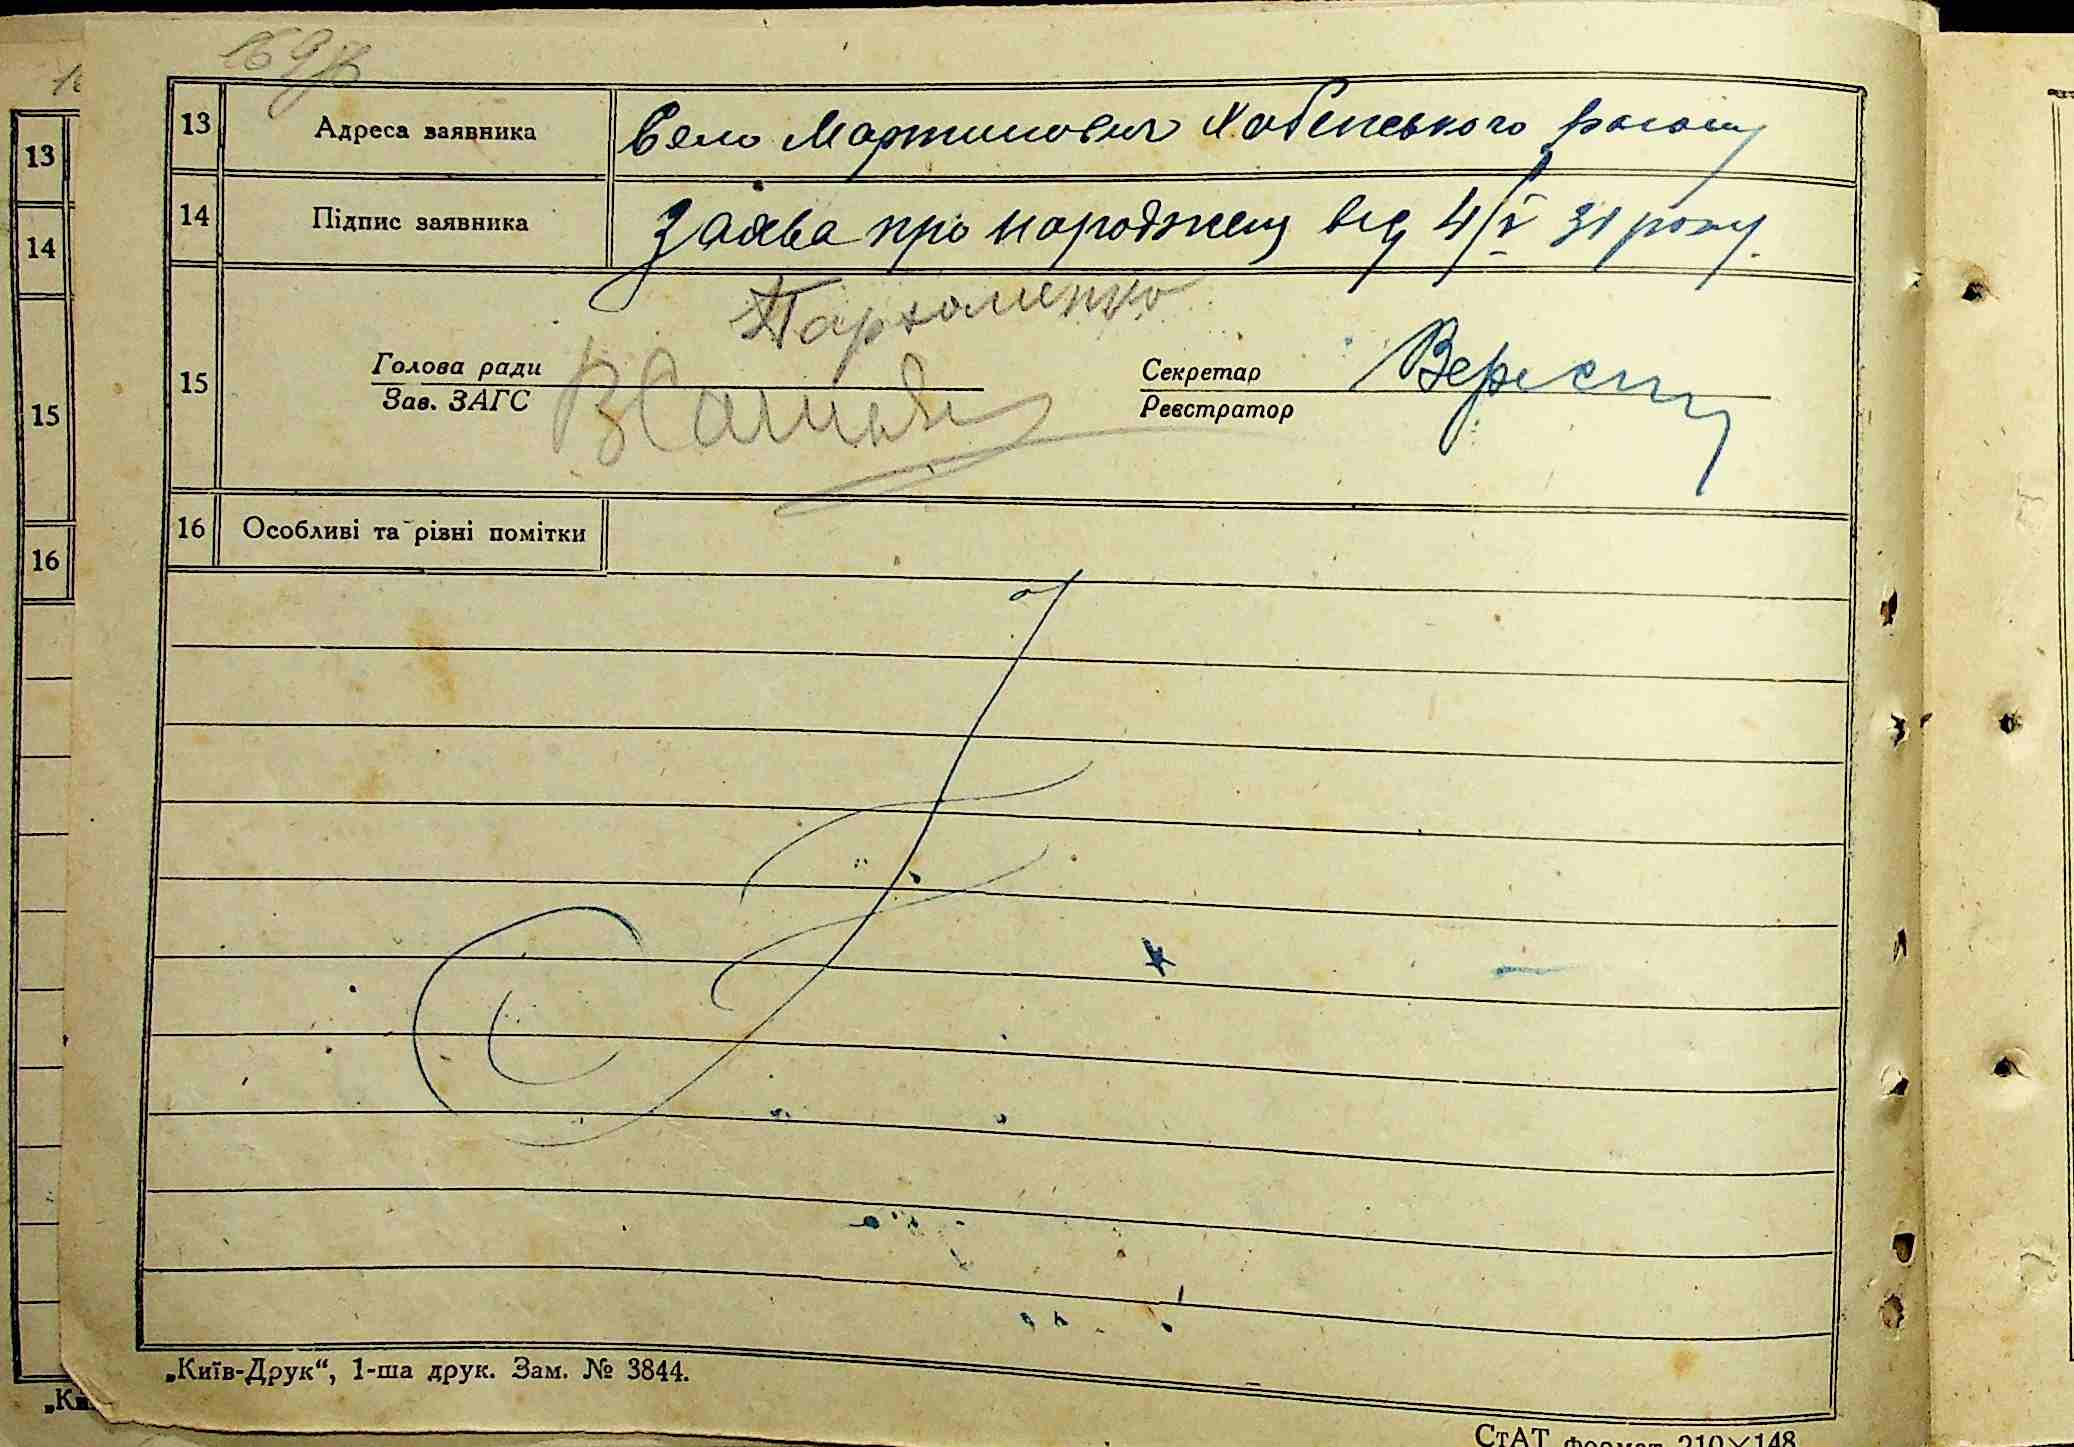 13 Адреса заявника Село Мартиновичі Хабенського району
14 Підпис заявника Заява про народжену від 4/V 31 року.
Пархоменко
15 Голова ради Секретар
Зав. ЗАГС Реєстратор
16 Особливі та різні помітки
„Київ-Друк“, 1-ша друк. Зам. № 3844.
СтАТ формат 210×148
13
14
15
16
„Ки